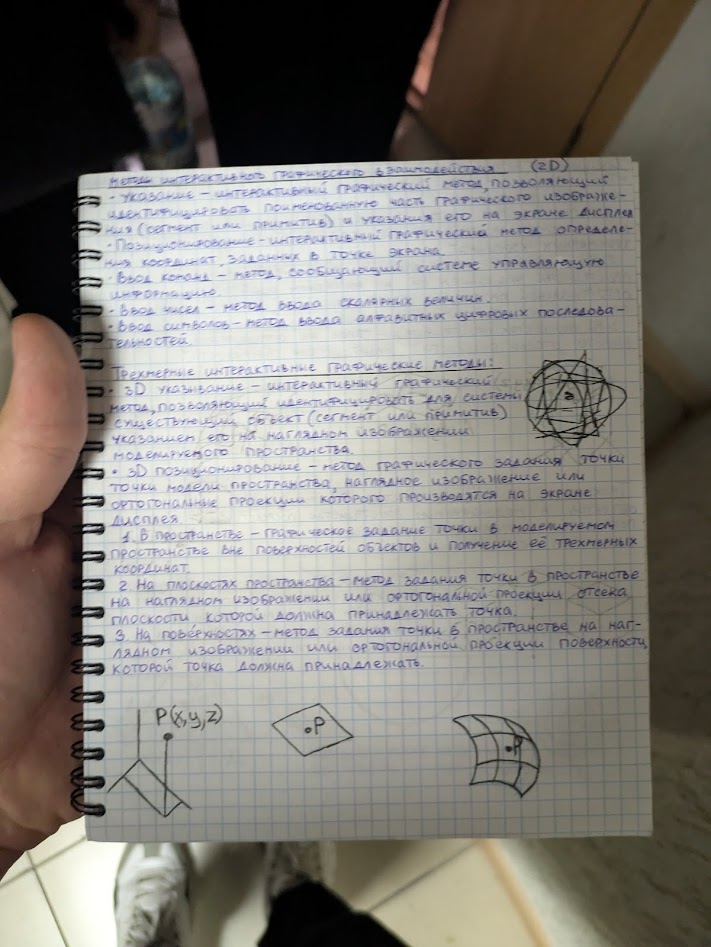 Методы интерактивного графического взаимодействия (2D)
• Указание – интерактивный графический метод, позволяющий
идентифицировать поименованную часть графического изображе-
ния (сегмент или примитив) и указания его на экране дисплея
• Позиционирование – интерактивный графический метод определе-
ния координат, заданных в точке экрана.
• Ввод команд – метод, сообщающий системе управляющую
информацию.
• Ввод чисел – метод ввода скалярных величин.
• Ввод символов – метод ввода алфавитных цифровых последова-
тельностей.
Трехмерные интерактивные графические методы:
• 3D указывание – интерактивный графический
метод, позволяющий идентифицировать для системы
существующий объект (сегмент или примитив)
указанием его на наглядном изображении
моделируемого пространства.
• 3D позиционирование – метод графического задания точки
точки модели пространства, наглядное изображение или
ортогональные проекции которого производятся на экране
дисплея.
1. В пространстве – графическое задание точки в моделируемом
пространстве вне поверхностей объектов и получение её трехмерных
координат.
2. На плоскостях пространства – метод задания точки в пространстве
на наглядном изображении или ортогональной проекции отсека
плоскости которой должна принадлежать точка.
3. На поверхностях – метод задания точки в пространстве на наг-
лядном изображении или ортогональной проекции поверхности,
которой точка должна принадлежать.
P(x,y,z)
P
P